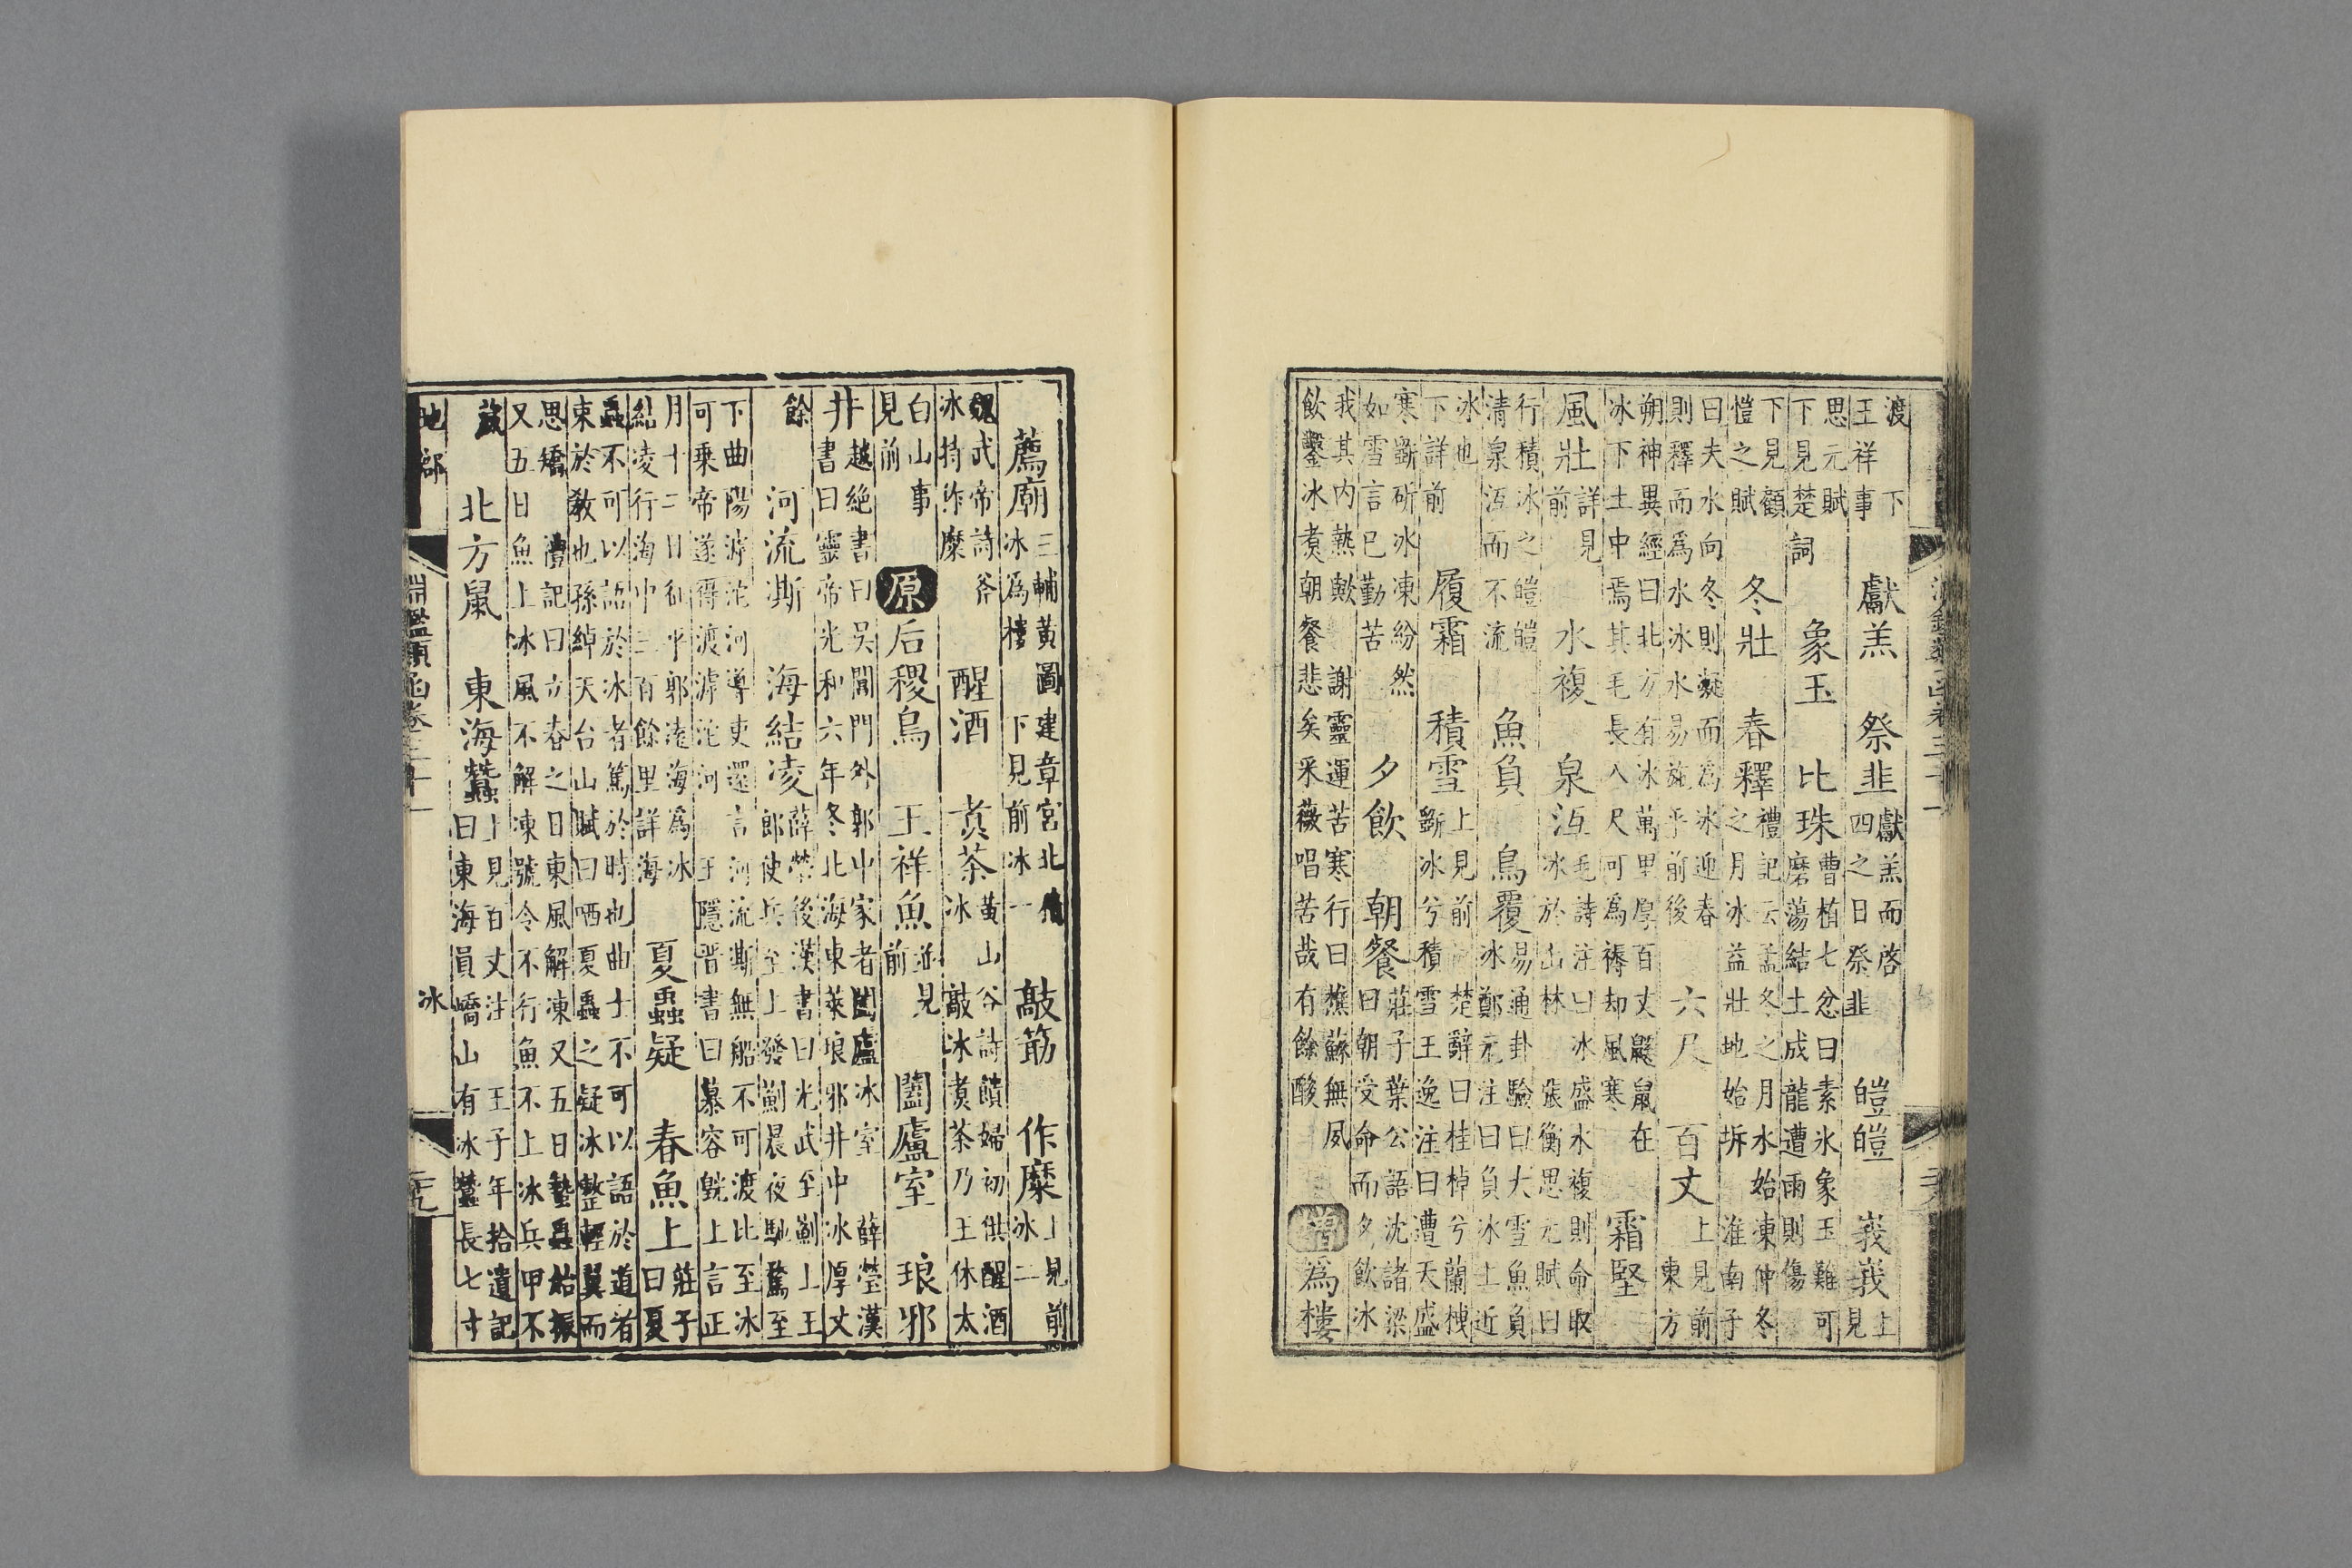 渡　下
王祥事
獻羔　祭韭
獻羔而啓
四之日祭韭
皚皚　峩峩
上
見
思元賦
下見楚詞
象玉　比珠
曹植七忿曰素氷象玉難可
磨蕩結土成龍遭雨則傷
下見顧
愷之賦
冬壯　春釋
禮記云孟冬之月水始凍仲冬
之月冰益壯地始坼　淮南子
曰夫水向冬則凝而爲冰迎春
則釋而爲水冰水易施乎前後
六尺　百丈
上見前
東方
朔神異經曰北方有冰萬里厚百丈鼷鼠在
冰下土中焉其毛長八尺可爲褥却風寒
霜堅
風壯
詳見
前
水複　泉沍
毛詩注曰冰盛水複則命取
冰於山林　張衡思元賦曰
行積冰之皚皚
清泉沍而不流
魚負　鳥覆
易通卦驗曰大雪魚負
冰鄭元注曰負冰上近
冰也
下詳前
履霜　積雪
上見前　楚辭曰桂棹兮蘭枻
斲冰兮積雪王逸注曰遭天盛
寒斲斫冰凍紛然
如雪言已勤苦
夕飲　朝餐
莊子葉公語沈諸梁
曰朝受命而夕飲冰
我其内熱歟　謝靈運苦寒行曰樵蘇無夙
飲鑿冰煑朝餐悲矣采薇唱苦哉有餘酸
增爲樓
薦廟
三輔黃圖　建章宮北積
冰爲樓　下見前冰一
敲筯　作糜
上見前
冰二
魏武帝詩斧
冰持作糜
醒酒　煑茶
黃山谷詩饋婦初供醒酒
冰　敲冰煑茶乃王休太
白山事
見前
原　后稷鳥　王祥魚
並見
前
闔廬室　琅邪
井
越絕書曰吳閶門外郭中冢者闔廬冰室　薛瑩漢
書曰靈帝光和六年冬北海東萊琅邪井中冰厚丈
餘
河流澌　海結凌
薛瑩後漢書曰光武至薊上王
郎使兵至上發薊晨夜馳騖至
下曲陽滹沱河導吏還言河流澌無船不可渡比至冰
可乘帝遂得渡滹沱河　王隱晉書曰慕容皝上言正
月十二日從平郭淩海爲冰
結凌行海中三百餘里詳海
夏蟲疑　春魚上
莊子
曰夏
蟲不可以語於冰者篤於時也曲士不可以語於道者
束於教也孫綽天台山賦曰哂夏蟲之疑冰整輕翼而
思矯　禮記曰立春之日東風解凍又五日蟄蟲始振
又五日魚上冰風不解凍號令不行魚不上冰兵甲不
藏
北方鼠　東海蠶
上見百丈注　王子年拾遺記
曰東海員嶠山有冰蠶長七寸
地部　淵鑑類函卷三十一　冰